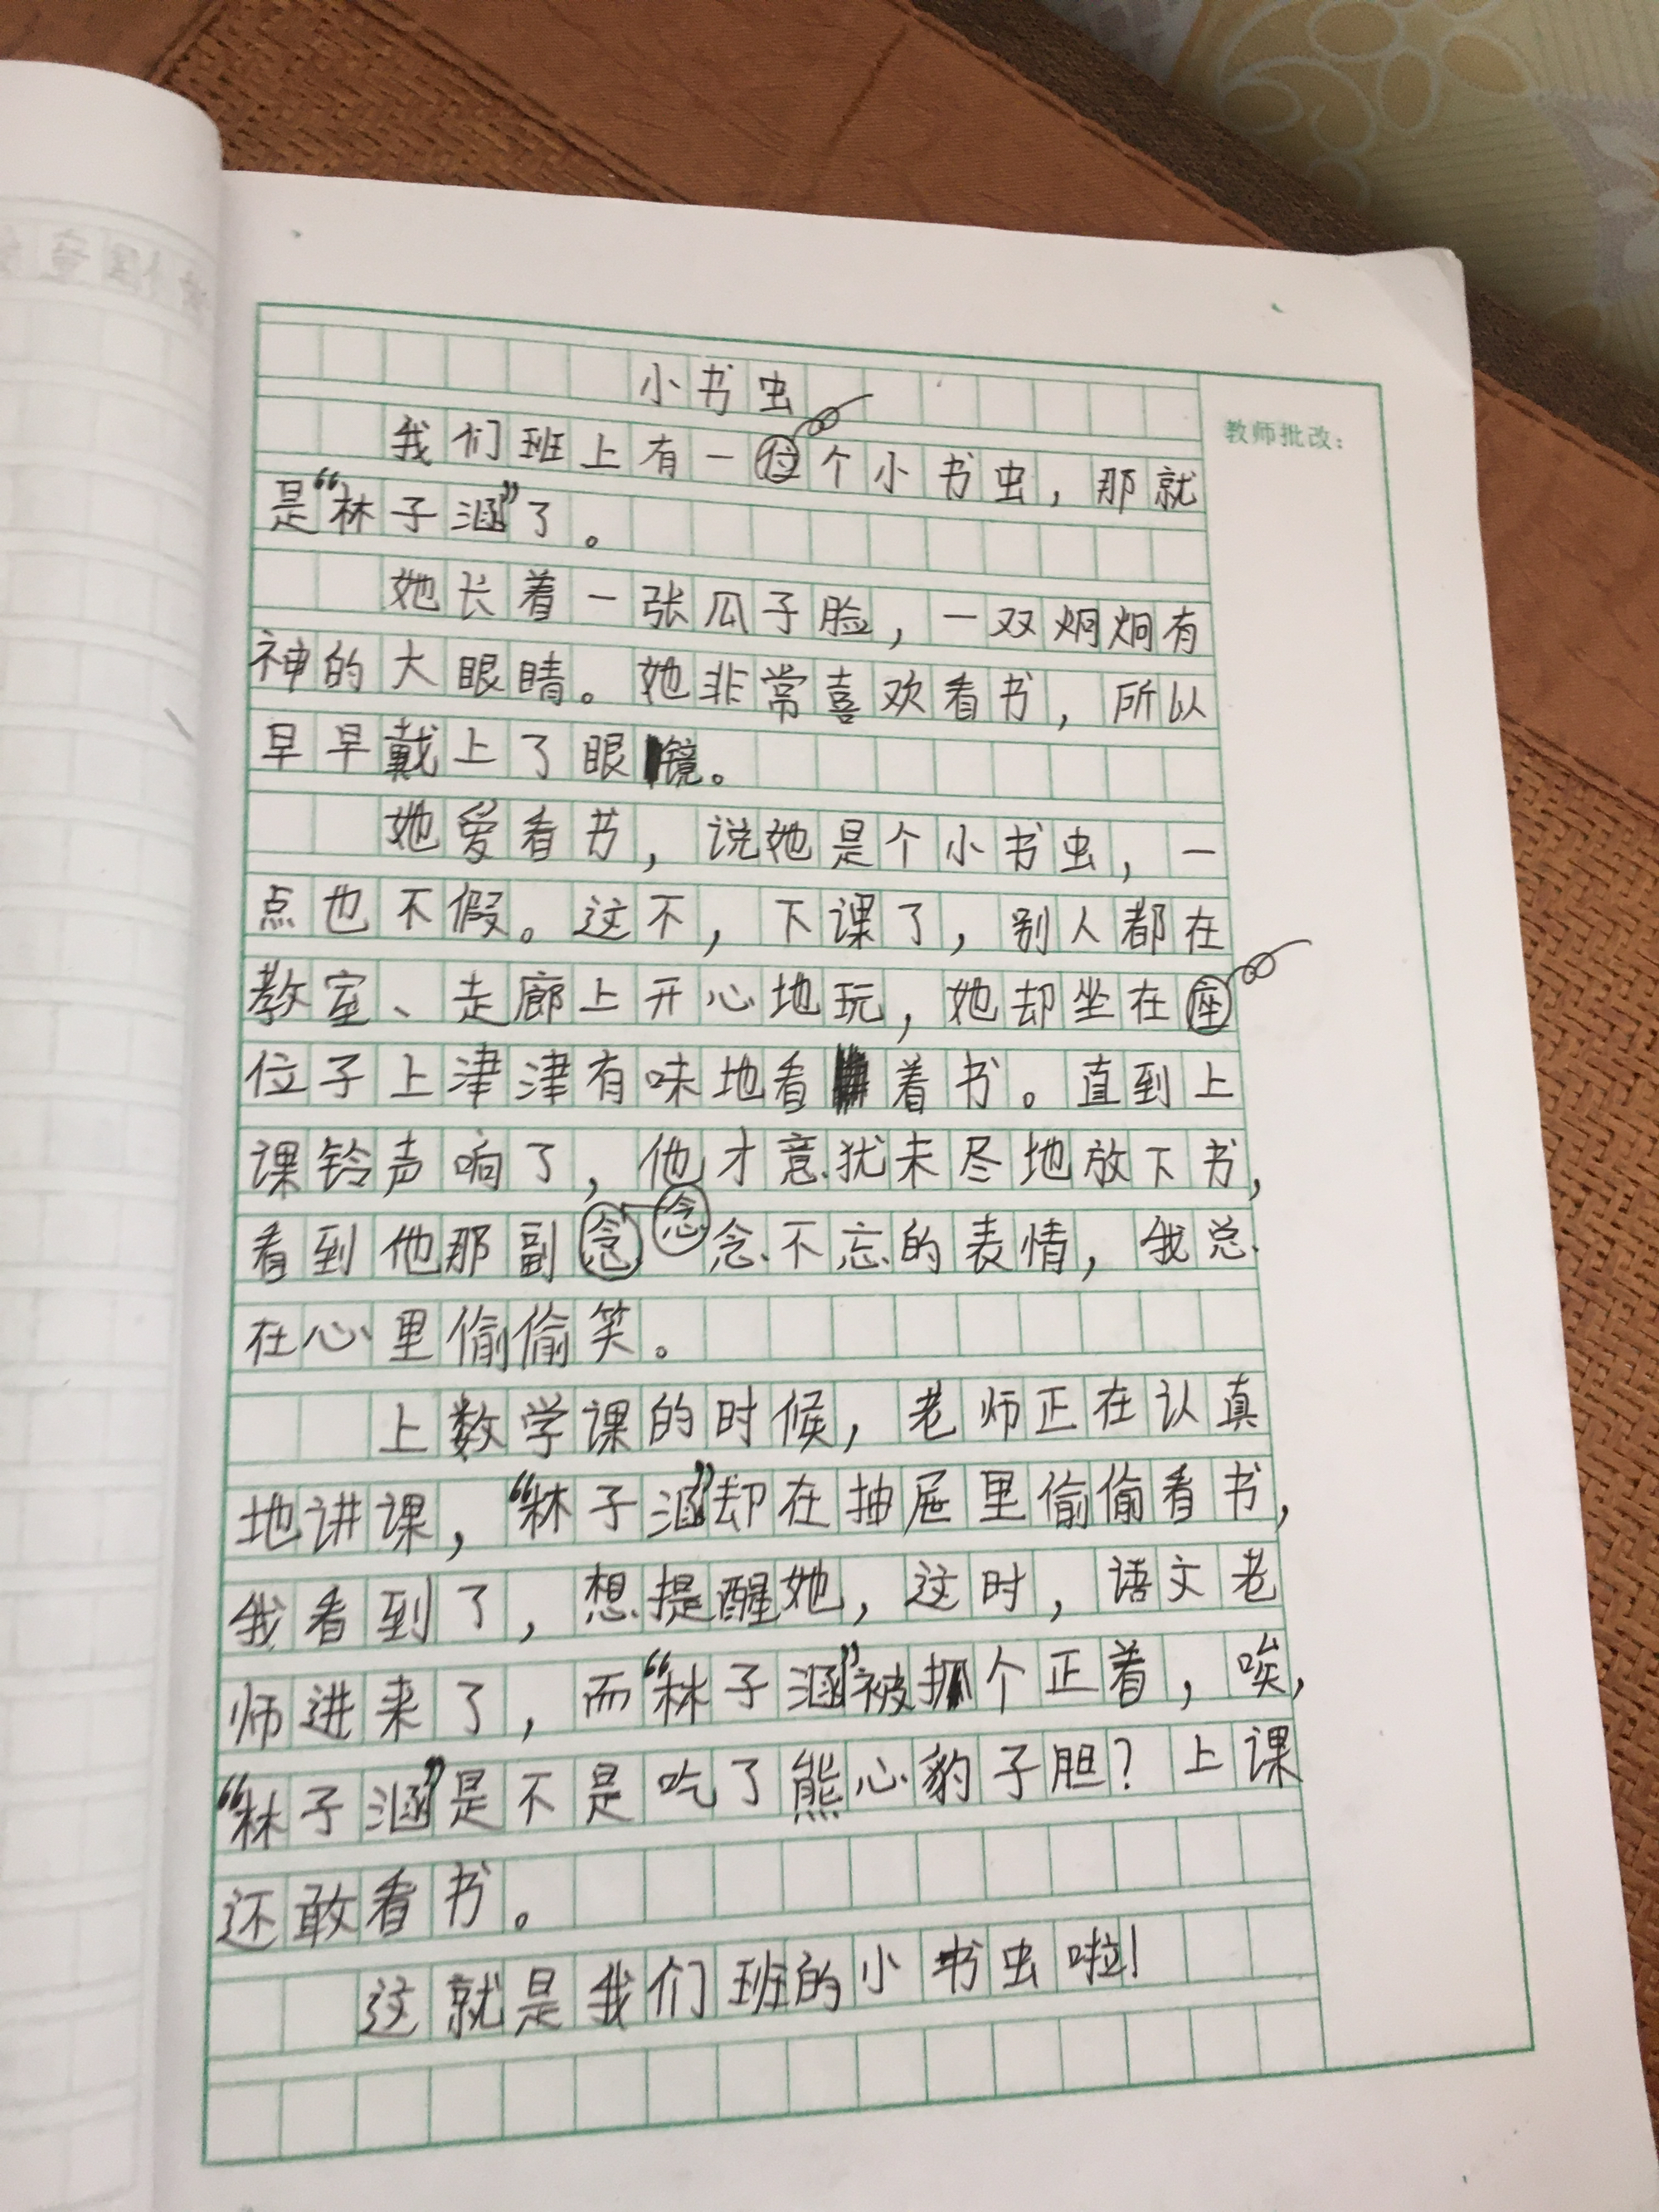 小书虫
教师批改：
我们班上有一个小书虫，那就
是“林子涵”了。
她长着一张瓜子脸，一双炯炯有
神的大眼睛。她非常喜欢看书，所以
早早戴上了眼镜。
她爱看书，说她是个小书虫，一
点也不假。这不，下课了，别人都在
教室、走廊上开心地玩，她却坐在
位子上津津有味地看着书。直到上
课铃声响了，他才意犹未尽地放下书，
看到他那副念念不忘的表情，我总
在心里偷偷笑。
上数学课的时候，老师正在认真
地讲课，“林子涵”却在抽屉里偷偷看书，
我看到了，想提醒她，这时，语文老
师进来了，而“林子涵”被抓个正着，唉，
“林子涵”是不是吃了熊心豹子胆？上课
还敢看书。
这就是我们班的小书虫啦！